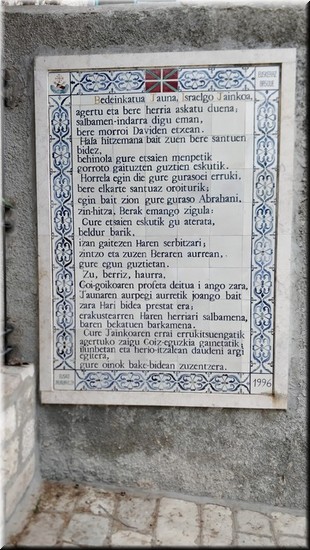 Bedeinkatua Jauna, Israelgo Jainkoa,
agertu eta bere herria askatu duena;
salbamen-indarra digu eman,
bere morroi Daviden etxean.
Hala hitzemana bait zuen bere santuen
bidez,
behinola gure etsaien menpetik
gorroto gaituzten guztien eskutik.
Horrela egin die gure gurasoei erruki,
bere elkarte santuaz oroiturik;
egin bait zion gure guraso Abrahani,
zin-hitza, Berak emango zigula:
Gure etsaien eskutik gu aterata,
beldur barik,
izan gaitezen Haren serbitzari;
zintzo eta zuzen Beraren aurrean,
gure egun guztietan.
Zu, berriz, haurra,
Goi-goikoaren profeta deitua i ango zara,
Jaunaren aurpegi aurretik joango bait
zara Hari bidea prestat era;
erakustearren Haren herriari salbamena,
baren bekatuen barkamena.
Gure Jainkoaren errai errukitsuengatik
agertuko zaigu Goiz-eguzkia gainetatik;
ilunbetan eta herio-itzalean daudeni argi
egitera,
gure oinok bake-bidean zuzentzera.
1996